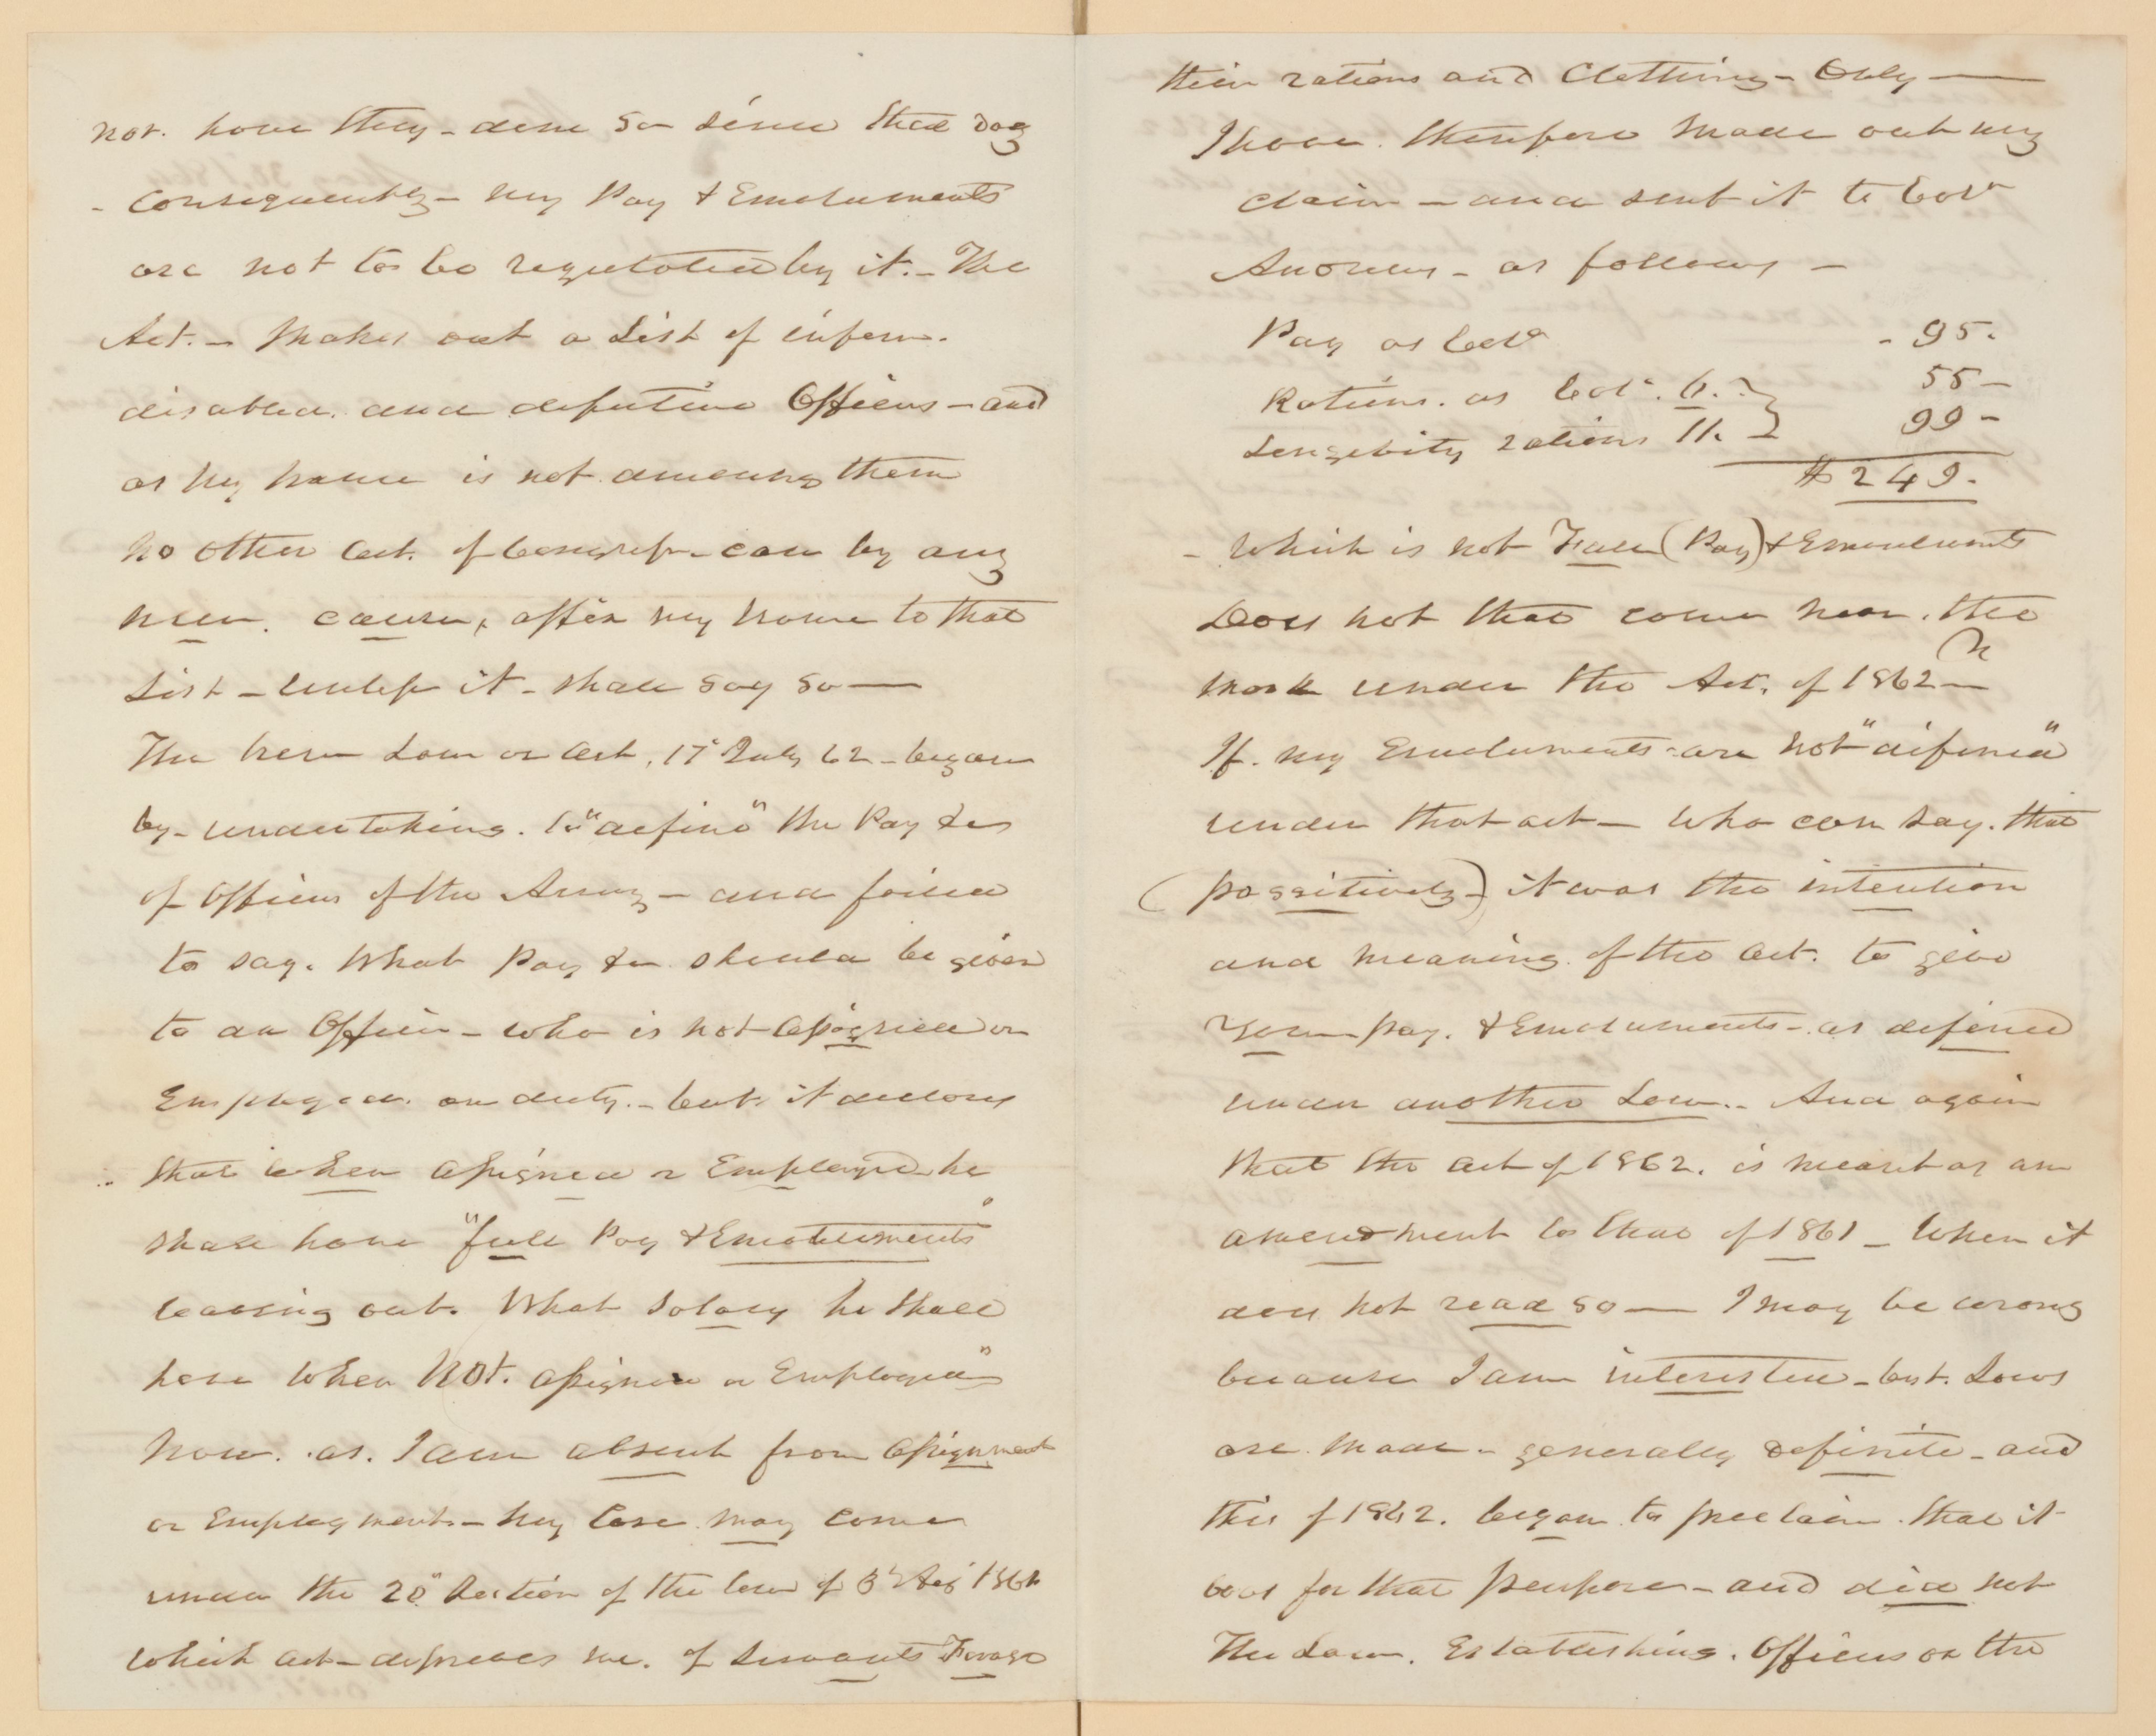 not. have they - done so since that day
- consequently - my Pay & Emoluments
are not to be regulated by it. - The
Act. - makes out a List of infirm.
disabled. and defective Officers - and
as my name is not among them
no other Act. of Congress - can by any
new. cause, affix my name to that
List - unless it - shall say so —
The new Law or Act. 17 July 62 - began
by - undertaking. to "define" the Pay &c
of Officers of the Army - and failed
to say. What Pay &c should be given
to an Officer - who is not assigned or
Employed. on duty. - but it declares
that when assigned or Employed he
shall have "full Pay & Emoluments"
leaving out. What Salary he shall
have when NOT. assigned or Employed"
now. as. I am absent from assignment
or Employment - my Case may come
under the 20" Section of the law of 3d Aug 1861
which act - deprives me. of Servants Forage
their rations and Clothing - Only —
I have. therefore made out my
claim - and sent it to Col
Andrews - as follows -
Pay as Col - 95.
Rations. as Col. 6. } 55 -
Longevity rations 11. } 99 -
$249.
- Which is not Full (Pay) & Emoluments
Does not that come near. the
mark under the Act. of 1862 -
If. my Emoluments are not "defined"
under that act - who can say. that
(possitively -) it was the intention
and meaning. of the Act. to give
your pay. & Emoluments - as defined
under another Law. - And again
that the Act of 1862. is meant as an
amendment to that of 1861 - When it
does not read so — I may be wrong
because I am interested - but. Laws
are. made - generally definite - and
this of 1862. began to proclaim. that it
was for that purpose - and did not
The Law. Establishing. Officers on the